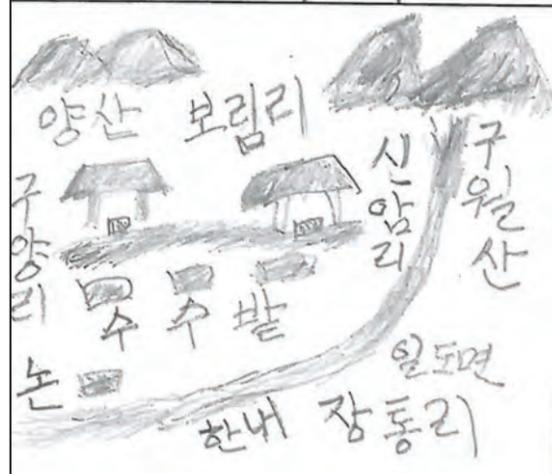 양산 보림리
구월산
신암리
구양리
수수밭
논
일도면
한내 장동리